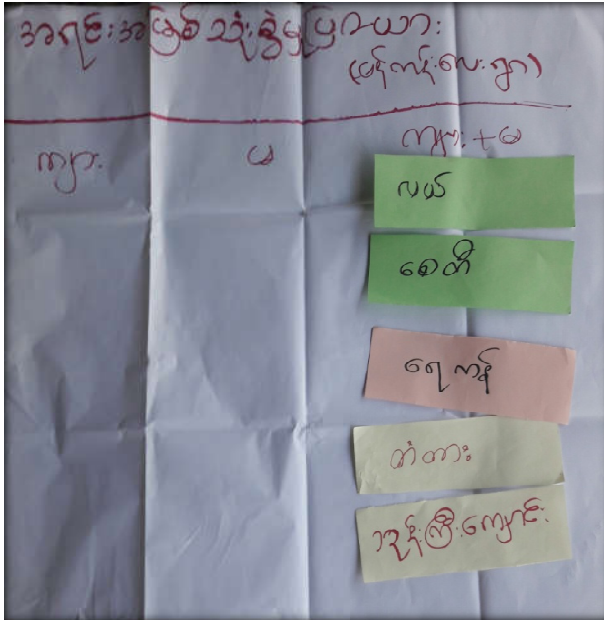 အရင်းအမြစ်သုံးစွဲမှုပြဇယား
(မန်ကန်းလေးရွာ)
ကျား မ ကျား+မ
လယ်
စေတီ
ရေကန်
တံတား
ဘုန်းကြီးကျောင်း